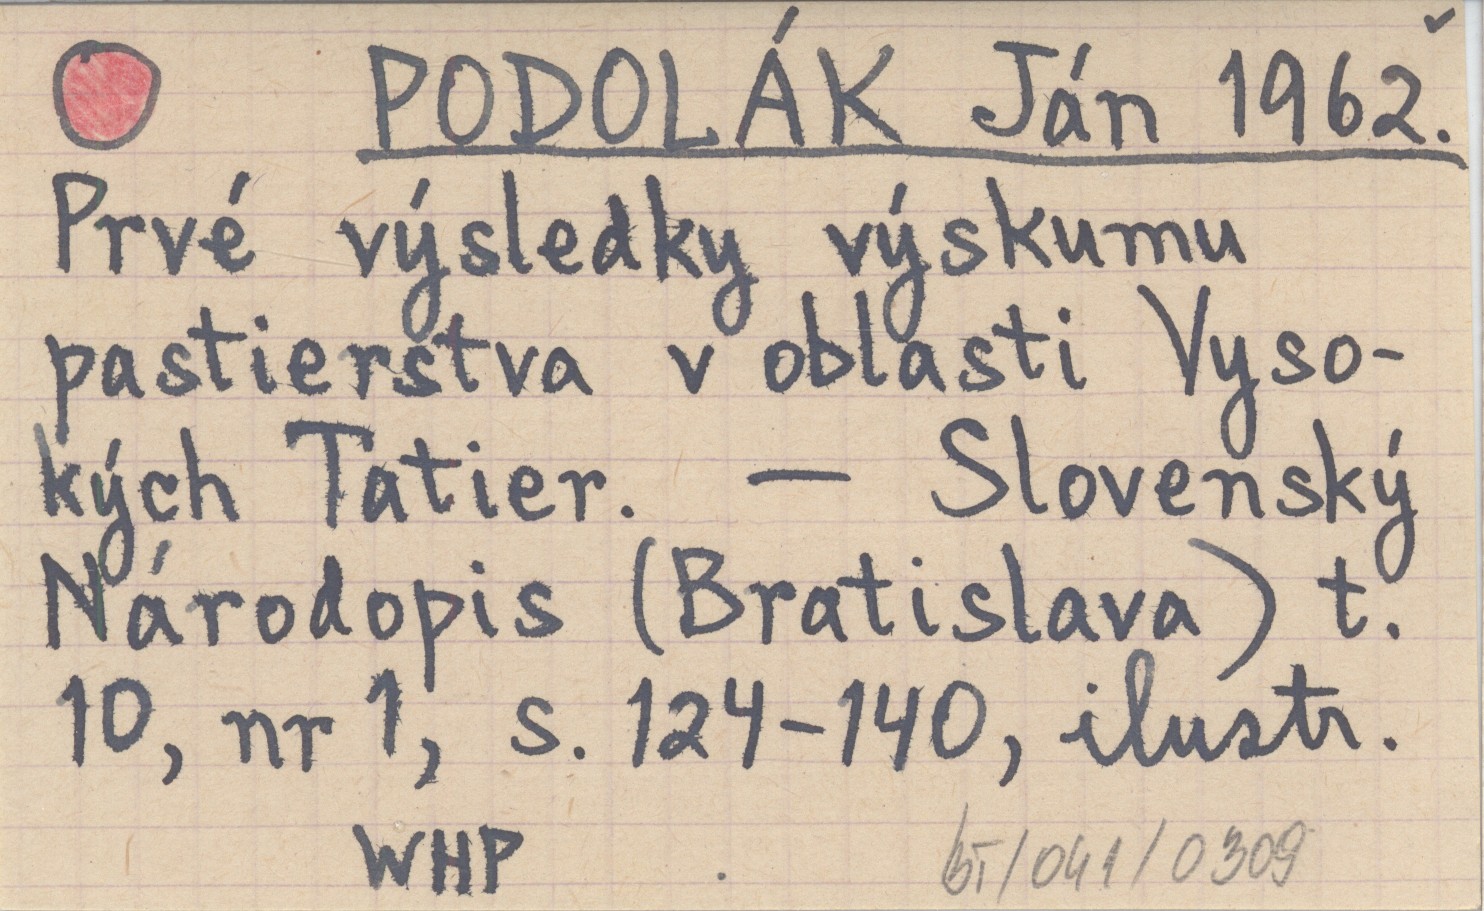 PODOLÁK Ján 1962.
Prvé výsledky výskumu
pastierstva v oblasti Vyso-
kých Tatier. — Slovenský
Národopis (Bratislava) t.
10, nr 1, s. 124-140, ilustr.
WHP
bT/041/0309